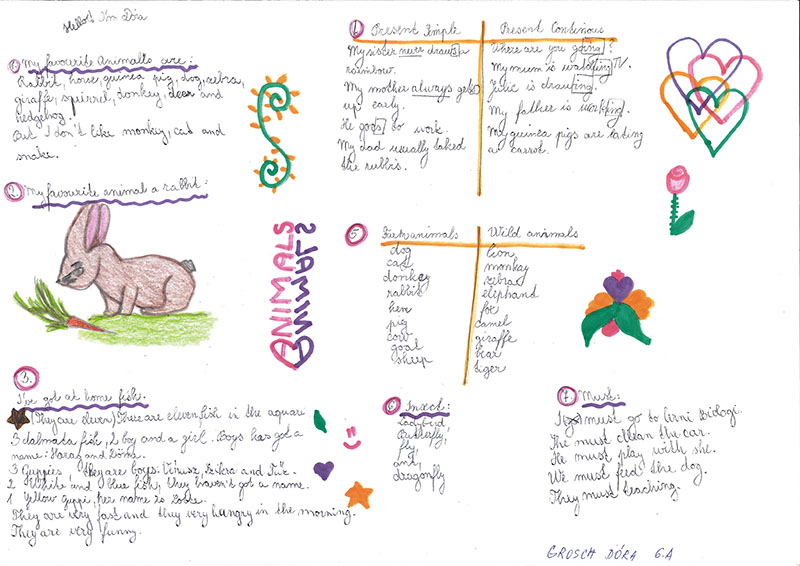 Hello! I'm Dóra
1. My favourite Animalls are:
Rabbit, horse, guinea pig, dog, zebra,
giraffe, squirrel, donkey, deer and
hedgehog.
But I don't like monkey, cat and
snake.
2. My favourite animal a rabbit:
ANIMALS
ANIMALS
3.
I've got at home fish.
(They are eleven) There are eleven fish in the aquari
5 dalmata fish, 1 boy and a girl. Boys has got a
name:
3 Guppies they are boys: Vírusz, Szikra and Tűz.
2 White and blue fish, they haven't got a name.
1 Yellow guppi, her name is
They are very fast and they very hangry in the morning.
They are very funny.
4. Present Simple
My sister never draws a
rainbow.
My mother always gets
up early.
He goes to work.
My dad usually taked
the rubbis.
Present Continous
Where are you going?
My mum is watching TV.
is drawing.
My father is working.
My guinea pigs are eating
a carrot.
5 Farm animals
dog
cat
donkey
rabbit
hen
pig
cow
goat
sheep
Wild animals
lion
monkey
zebra
eliphand
fox
camel
giraffe
bear
tiger
6 Insect:
Ladybird
Butterfly
fly
ant
dragonfly
7. Must:
I must go to
The must clean the car.
He must play with she.
We must feed the dog.
They must teaching.
GROSCH DÓRA 6.A